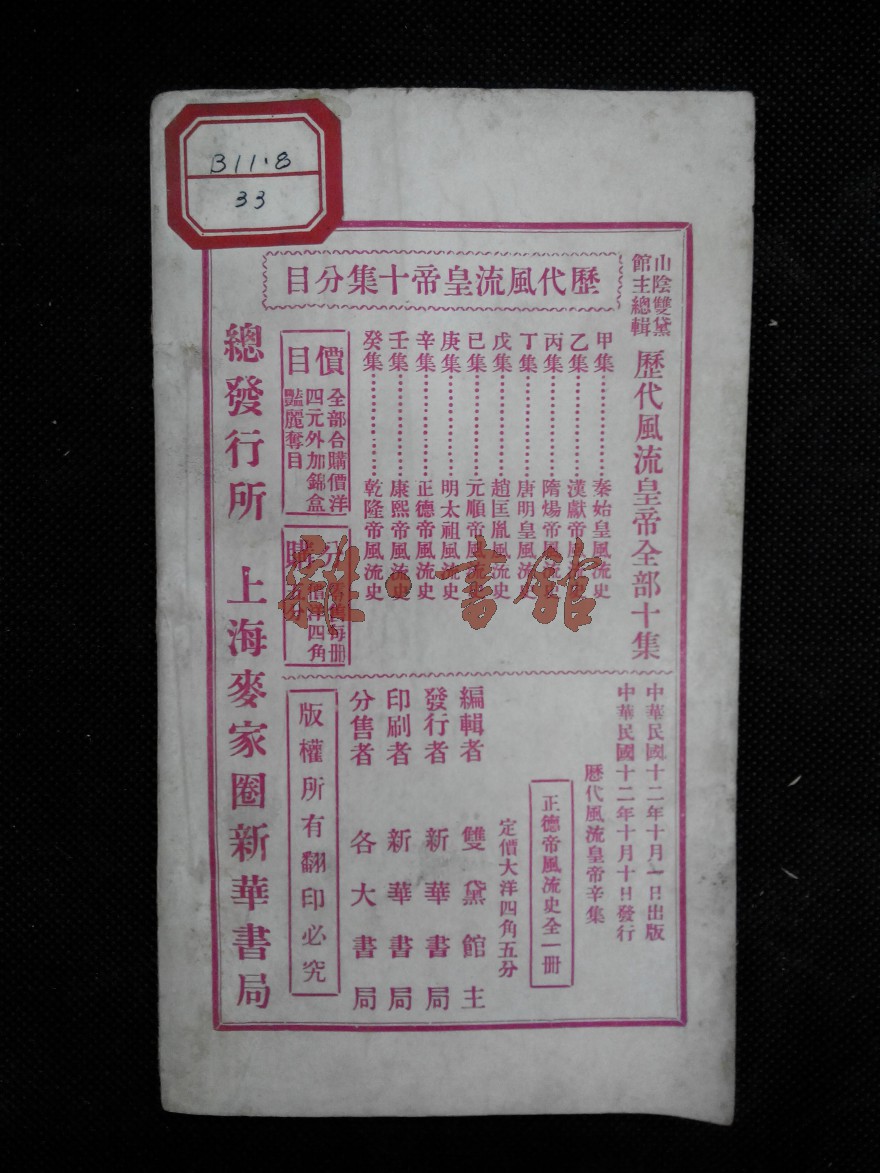 B11·8
33
山陰雙黛
館主總輯
歷代風流皇帝全部十集
歷代風流皇帝十集分目
甲集…………秦始皇風流史
乙集…………漢獻帝風流史
丙集…………隋煬帝風流史
丁集…………唐明皇風流史
戊集…………趙匡胤風流史
己集…………元順帝風流史
庚集…………明太祖風流史
辛集…………正德帝風流史
壬集…………康熙帝風流史
癸集…………乾隆帝風流史
價目
全部合購價洋
四元外加錦盒
豔麗奪目
分購
每冊
價洋四角
五分
中華民國十二年十月一日出版
中華民國十二年十月十日發行
歷代風流皇帝辛集
正德帝風流史全一冊
定價大洋四角五分
編輯者 雙黛館主
發行者 新華書局
印刷者 新華書局
分售者 各大書局
版權所有翻印必究
總發行所 上海麥家圈新華書局
雜·書館